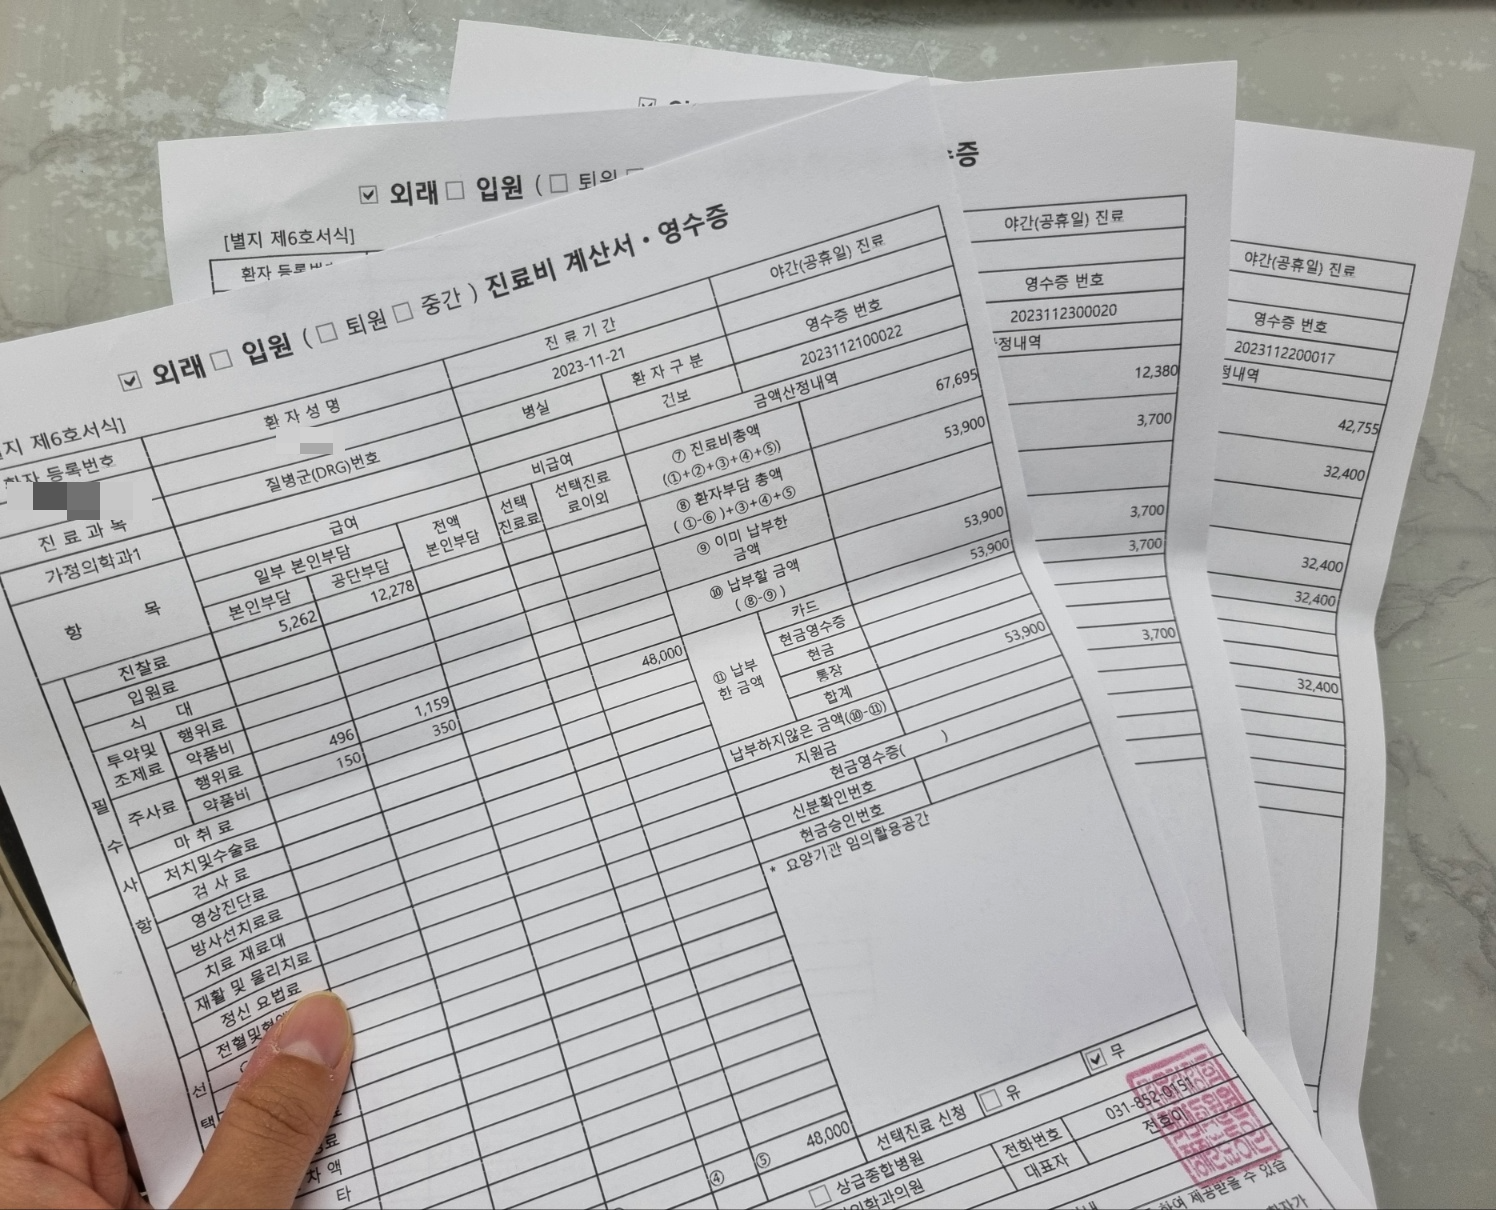 외래 □ 입원 ( □ 퇴원
[별지 제6호서식]
환자 등록번호
증
야간(공휴일) 진료
영수증 번호
2023112300020
정내역
12,380
3,700
3,700
3,700
3,700
야간(공휴일) 진료
영수증 번호
2023112200017
정내역
42,755
32,400
32,400
32,400
32,400
☑ 외래 □ 입원 ( □ 퇴원 □ 중간 ) 진료비 계산서 • 영수증
지 제6호서식]
환자 등록번호
환 자 성 명
진 료 기 간
야간(공휴일) 진료
2023-11-21
진 료 과 목
질병군(DRG)번호
병실
환 자 구 분
영수증 번호
가정의학과1
건보
2023112100022
항 목
급여
비급여
금액산정내역
일부 본인부담
전액 본인부담
선택 진료료
선택진료 료이외
본인부담
공단부담
⑦ 진료비총액 (①+②+③+④+⑤)
67,695
⑧ 환자부담 총액 ( ①-⑥ )+③+④+⑤
53,900
⑨ 이미 납부한 금액
⑩ 납부할 금액 ( ⑧-⑨ )
53,900
⑪ 납부 한 금액
카드
53,900
현금영수증
현금
통장
합계
53,900
납부하지않은 금액(⑩-⑪)
지원금
현금영수증( )
신분확인번호
현금승인번호
* 요양기관 임의활용공간
필 수 사 항
진찰료
5,262
12,278
입원료
식 대
투약및 조제료
행위료
약품비
48,000
주사료
행위료
496
1,159
약품비
150
350
마 취 료
처치및수술료
검 사 료
영상진단료
방사선치료료
치료 재료대
재활 및 물리치료
정신 요법료
선 택
차 액
타
④
⑤
48,000
선택진료 신청
□ 유
☑ 무
□ 상급종합병원
전화번호
031-852-0151
의학과의원
대표자
하여 제공받을 수 있습
환자가